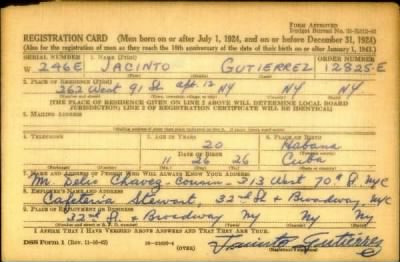 FORM APPROVED
REGISTRATION CARD (Men born on or after July 1, 1924, and on or before December 31, 1924)
(Also for the registration of men as they reach the 18th anniversary of the date of their birth on or after January 1, 1943.)
SERIAL NUMBER 1. NAME (Print) ORDER NUMBER
W 246E JACINTO GUTIERREZ 12825-E
(First) (Middle) (Last)
2. PLACE OF RESIDENCE (Print)
262 West 91 St. apt. 12 NY NY NY
[THE PLACE OF RESIDENCE GIVEN ON LINE 2 ABOVE WILL DETERMINE LOCAL BOARD
JURISDICTION; LINE 2 OF REGISTRATION CERTIFICATE WILL BE IDENTICAL]
3. MAILING ADDRESS
4. TELEPHONE 5. AGE IN YEARS 6. PLACE OF BIRTH
20 Habana
DATE OF BIRTH
11 26 26 Cuba
7. NAME AND ADDRESS OF PERSON WHO WILL ALWAYS KNOW YOUR ADDRESS
Mr. Delio Chavez - cousin - 313 West 70th St. NYC
8. EMPLOYER'S NAME AND ADDRESS
Cafeteria Stewart, 32nd St. & Broadway, NYC
9. PLACE OF EMPLOYMENT OR BUSINESS
32nd St. & Broadway Ny Ny Ny
I AFFIRM THAT I HAVE VERIFIED ABOVE ANSWERS AND THAT THEY ARE TRUE.
DSS Form 1 (OVER) Jacinto Gutiérrez